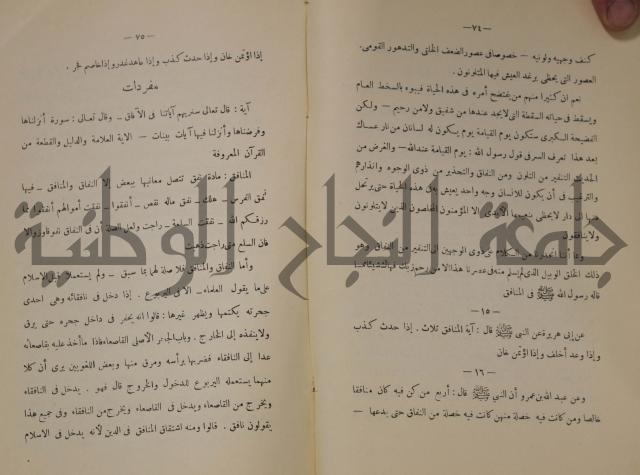 — ٧٤ —
كنف وجهيه ولونيه — خصوصا فى عصور الضعف الخلقى والتدهور القومى.
العصور التى يحظى برغد العيش فيها المتلونون.
نعم ان كثيرا منهم من يفتضح أمره فى هذه الحياة فيبوء بالسخط العام
ويسقط فى حياته السقطة التى لا يجد عندها من شفيق ولا من رحيم — ولكن
الفضيحة الكبرى ستكون يوم القيامة يوم يكون له لسانان من نار عساك
بعد هذا تعرف السر فى قول رسول الله : يوم القيامة عند الله — والغرض من
الحديث التنفير من التلون ومن النفاق والتحذير من ذوى الوجوه وانذارهم
والترغيب فى أن يكون للانسان وجه واحد يعيش به فى هذه الحياة حتى يرتحل
منها الى دار لا يحظى بنعيمها الأبدى إلا المؤمنون المخلصون الذين لا يتلونون
ولا ينافقون
ذلك الخلق الوبيل الذى لم يسلم منه فى عصرنا هذا إلا من رحم ربك
قاله رسول الله ﷺ فى المنافق
— ١٥ —
عن أبى هريرة عن النبى ﷺ قال : آية المنافق ثلاث . إذا حدث كذب
وإذا وعد أخلف وإذا اؤتمن خان
— ١٦ —
وعن عبد الله بن عمرو أن النبى ﷺ قال : أربع من كن فيه كان منافقا
خالصا ومن كانت فيه خصلة منهن كانت فيه خصلة من النفاق حتى يدعها —
— ٧٥ —
إذا اؤتمن خان وإذا حدث كذب وإذا عاهد غدر وإذا خاصم فجر .
مفردات
آية : قال تعالى سنريهم آياتنا فى الآفاق — وقال تعالى : سورة أنزلناها
وفرضناها وأنزلنا فيها آيات بينات — الآية العلامة والدليل والقطعة من
القرآن المعروفة
المنافق : مادة نفق تتصل معانيها ببعض إلا النفاق والمنافق — فيها
نفق الفرس — هلك — نفق ماله نقص — أنفقوا — نفقت أموالهم أنفقوا مما
رزقكم الله — نفقت السلعة — راجت
فان السلع متى راجت ذهبت
وأما النفاق والمنافق فلا صلة لهما بما سبق — ولم يستعملا قبل الاسلام
على ما يقول العلماء — إلا فى اليربوع . إذا دخل فى نافقائه وهى احدى
جحرته يكتمها ويظهر غيرها : قالوا انه يحفر فى داخل جحره حتى يرق
ولا ينفذه إلى الخارج . وباب الجحر الأصلى القاصعاء فاذا ما أخذ عليه بقاصعائه
عدا إلى النافقاء فضربها برأسه ومرق منها وبعض اللغويين يرى أن كلا
منهما يستعمله اليربوع للدخول والخروج قال فهو . يدخل فى النافقاء
ويخرج من القاصعاء ويدخل فى القاصعاء ويخرج من النافقاء وفى جميع هذا
يقولون نافق . قالوا ومنه اشتقاق المنافق فى الدين لأنه يدخل فى الاسلام
جامعة النجاح الوطنية